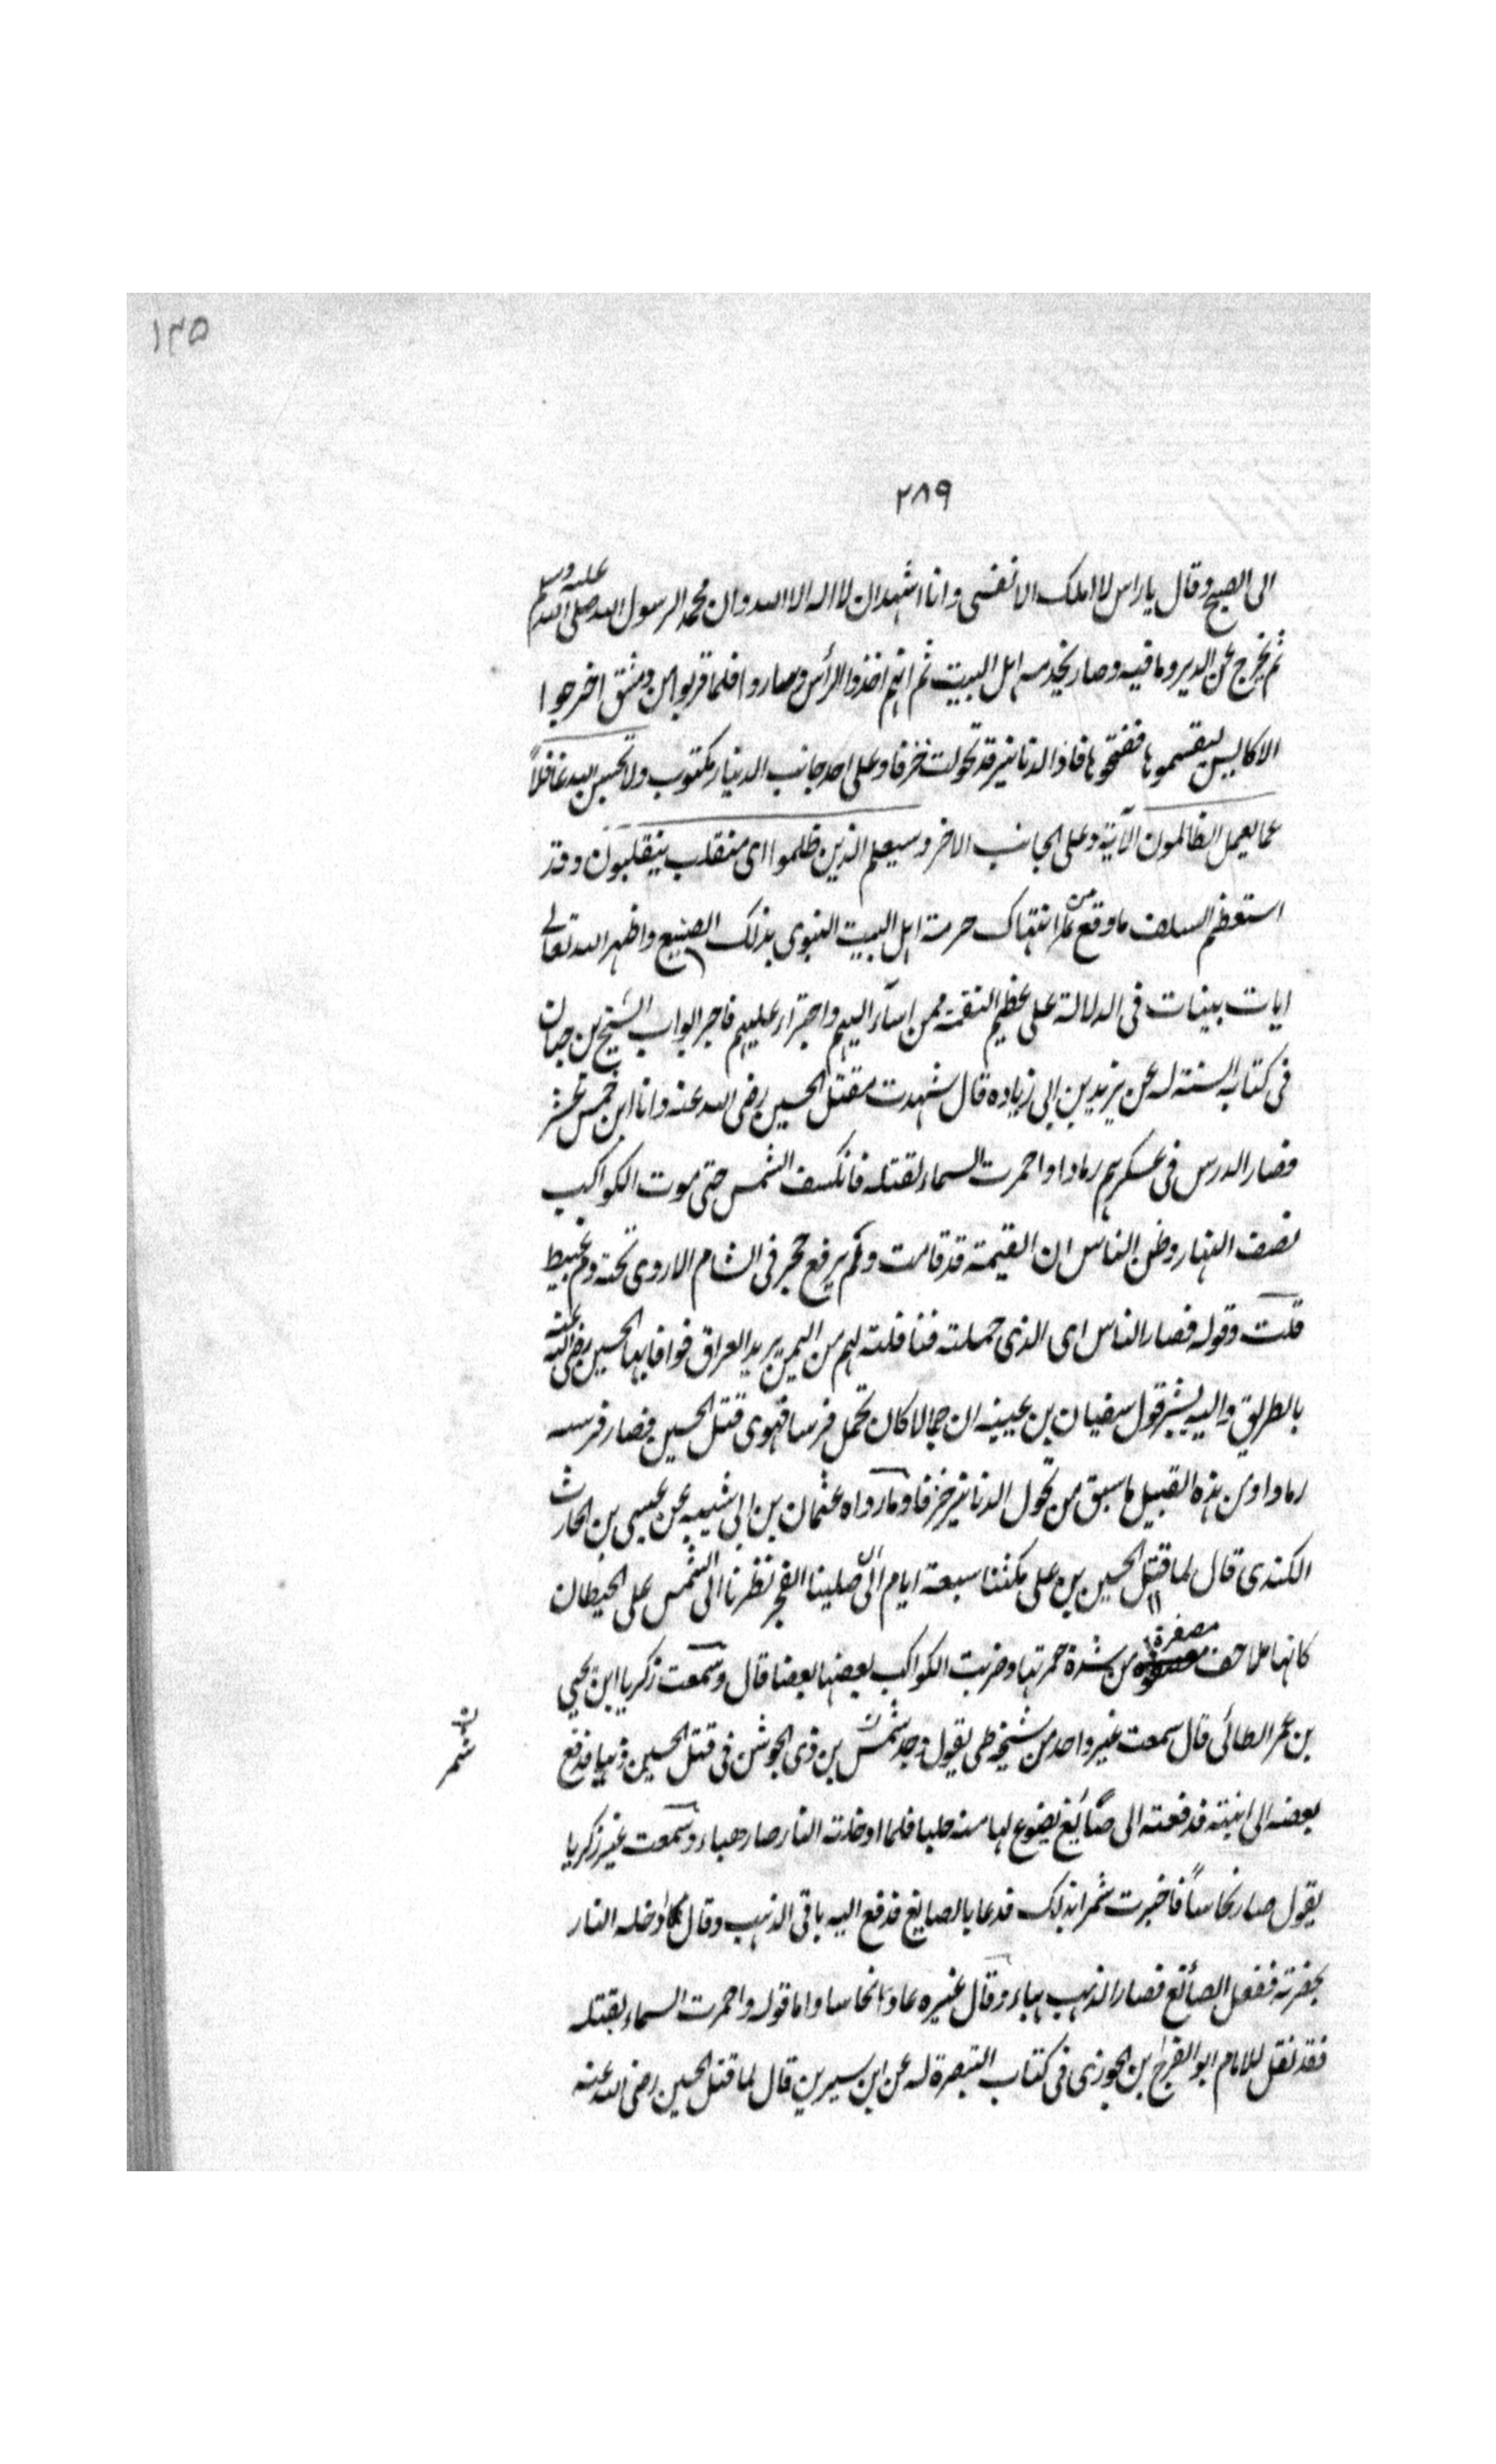 ١٣٥
٢٨٩
الى الصبح وقال ياراس لا املك الا نفسى وانا اشهد ان لا اله الا الله وان محمد الرسول الله صلى الله عليه وسلم
ثم يخرج عن الدير وما فيه وصار يخدم اهل البيت ثم انهم اخذوا الرأس وصاروا فلما قربوا من دمشق اخرجوا
الاكاليس ليقسموها ففتحوها فاذا الدنانير قد تحولت خزفا وعلى احد جانب الدينار مكتوب ولا تحسبن الله غافلاً
عما يعمل الظالمون الآية وعلى الجانب الاخر وسيعلم الذين ظلموا اى منقلب ينقلبون وقد
استعظم السلف ما وقع من انتهاك حرمة اهل البيت النبوى بذلك الصنيع واظهر الله تعالى
ايات بينات فى الدلالة على عظيم النقمة ممن اساء اليهم واجترأ عليهم فاخبر ابواب الشيخ بن حبان
فى كتاب السنة له عن يزيد بن ابى زياده قال شهدت مقتل الحسين رضى الله عنه وانا ابن خمس عشر
فصار الدرس فى عسكرهم رمادا واحمرت السماء لقتله فانكسف الشمس حتى موت الكواكب
نصف النهار وظن الناس ان القيمة قد قامت ولم يرفع حجر فى الشام الا روى تحته دم عبيط
قلت وقوله فصار الناس اى الذى حملته فنا فلته لهم من اليمن يريد العراق فوافا بها الحسين رضى الله عنه
بالطريق واليه يشير قول سفيان بن عيينه ان جمالا كان تحمل فرسا فهوى قتل الحسين فصار فرسه
رمادا ومن هذه القبيل ما سبق من تحول الدنانير خزفا وما رواه عثمان بن ابى شيبه عن عيسى بن الحارث
الكندى قال لما قتل الحسين بن على مكثنا سبعة ايام الى ان صلينا الفجر نظرنا الى الشمس على الحيطان
كانها ملاحف مصفرة من شدة حمرتها وضربت الكواكب بعضها بعضا قال وسمعت زكريا ابن يحيى
بن عمر الطائى قال سمعت غير واحد من شيخه طى يقول وجد شمس بن ذى الجوشن فى قتل الحسين ذهبا فدفع
ن شمر
بعضه الى ابنته فدفعته الى صائغ يضوع لها منه حليا فلما ادخلته النار صار هباء وسمعت غير زكريا
يقول صار نحاساً فاخبرت شمرا بذلك فدعا بالصايغ فدفع اليه باقى الذهب وقال ادخله النار
بحضرته ففعل الصائغ فصار الذهب هباء وقال غيره عاد نحاسا واما قوله واحمرت السماء بقتله
فقد نقل للامام ابو الفرج بن الجوزى فى كتاب التبصرة له عن ابن سيرين قال لما قتل الحسين رضى الله عنه